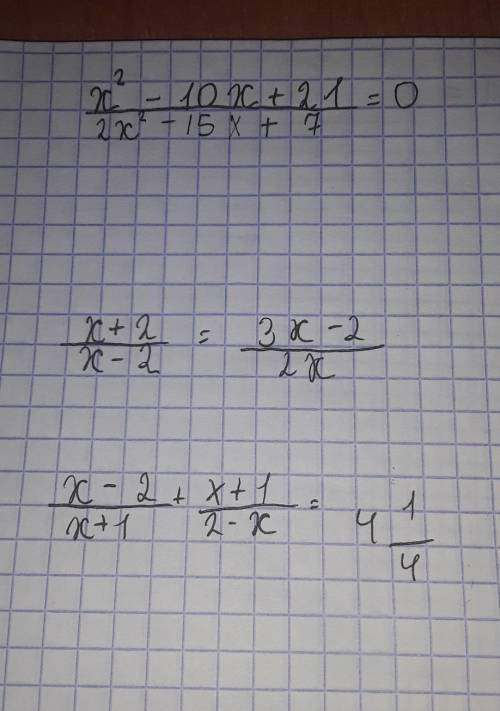 x² - 10x + 21 / 2x² - 15x + 7 = 0
x + 2 / x - 2 = 3x - 2 / 2x
x - 2 / x + 1 + x + 1 / 2 - x = 4 1/4